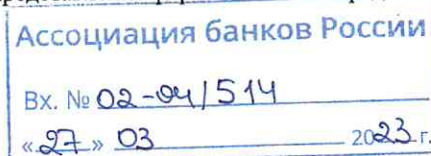 Ассоциация банков России
Вх. № 02-04/514
«27» 03 2023 г.